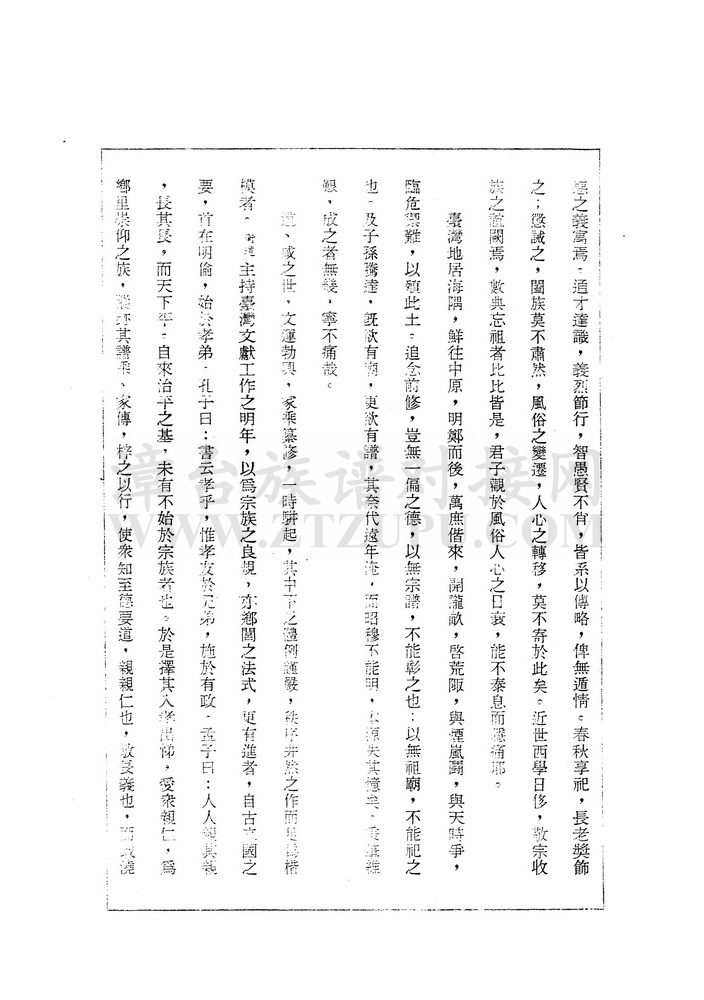 惡之義寓焉。通才達識，義烈節行，智愚賢不肖，皆系以傳略，俾無遁情。春秋享祀，長老獎飾
之；懲誡之，闔族莫不肅然，風俗之變遷，人心之轉移，莫不寄於此矣。近世西學日侈，敬宗收
族之誼闕焉，數典忘祖者比比皆是，君子觀於風俗人心之日衰，能不泰息而痛耶。
臺灣地居海隅，鮮往中原，明鄭而後，萬庶偕來，開隴畝，啓荒陬，與煙嵐鬪，與天時爭，
臨危禦難，以殖此土。追念前修，豈無一偏之德，以無宗譜，不能彰之也；以無祖廟，不能祀之
也。及子孫騰達，旣欲有廟，更欲有譜，其奈代遠年淹，而昭穆不能明，本源失其憶矣。維
艱，成之者無幾，寧不痛哉。
道、咸之世，文運勃興，家乘纂修，一時駢起，其中不乏體例謹嚴，秩序井然之作而足爲楷
模者。主持臺灣文獻工作之明年，以爲宗族之良規，亦鄉閭之法式，更有進者，自古立國之
要，首在明倫，始於孝弟。孔子曰：書云孝乎，惟孝友於兄弟，施於有政。孟子曰：人人親其親
，長其長，而天下平。自來治平之基，未有不始於宗族者也。於是擇其入孝出悌，愛衆親仁，爲
鄉里崇仰之族，其譜乘、家傳，梓之以行，使衆知至德要道，親親仁也，敬長義也，而
章台族谱对接网
WWW.ZTZUPU.COM